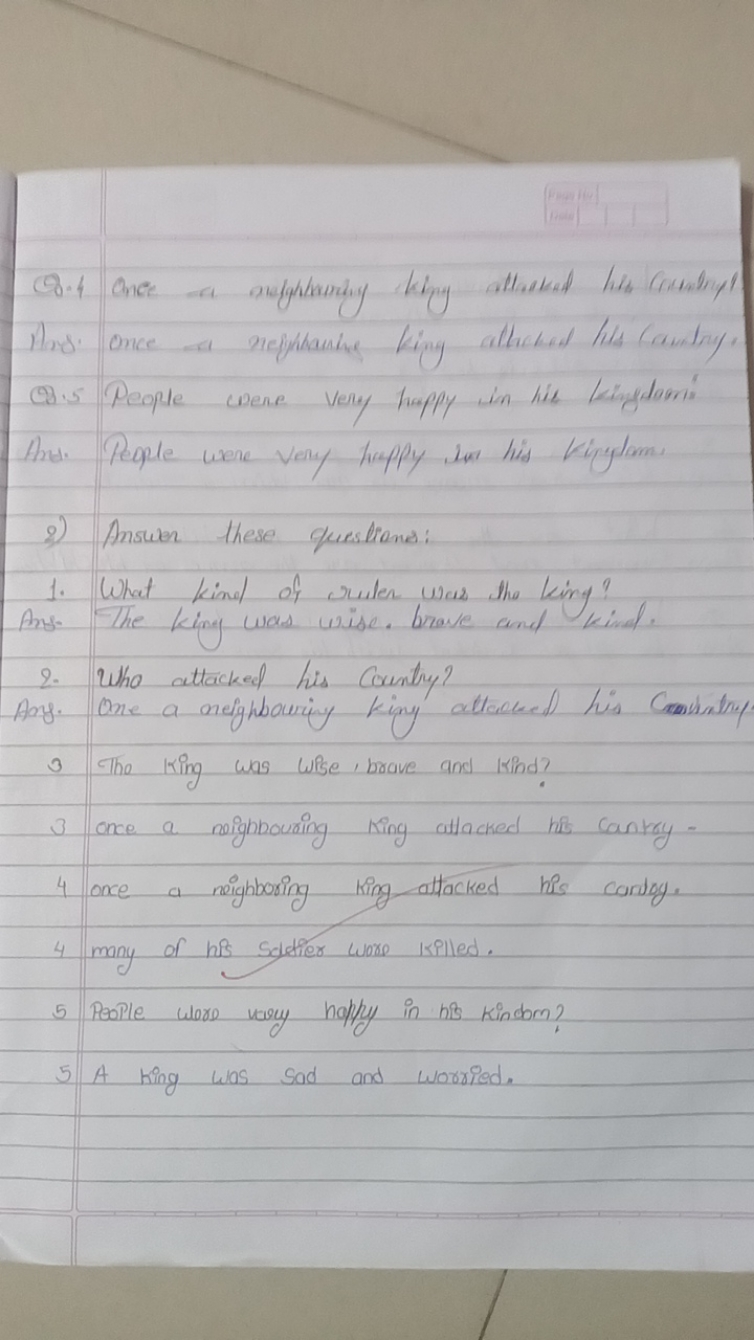 Page No.
Date
Q.4 Once a neighbouring king attacked his Country!
Ans. once a neighbouring king attacked his Country.
Q.5 People were very happy in his kingdom!
Ans. People were very happy in his kingdom.
2) Answer these questions:
1. What kind of ruler was the king?
Ans. The king was wise. brave and kind.
2. Who attacked his Country?
Ans. One a neighbouring king attacked his Country
3 The king was wise, brave and kind?
3 once a neighbouring king attacked his cantry-
4 once a neighboring king attacked his
4 many of his soldier wore killed.
5 People wore very happy in his kindom?
5 A king was sad and worried.